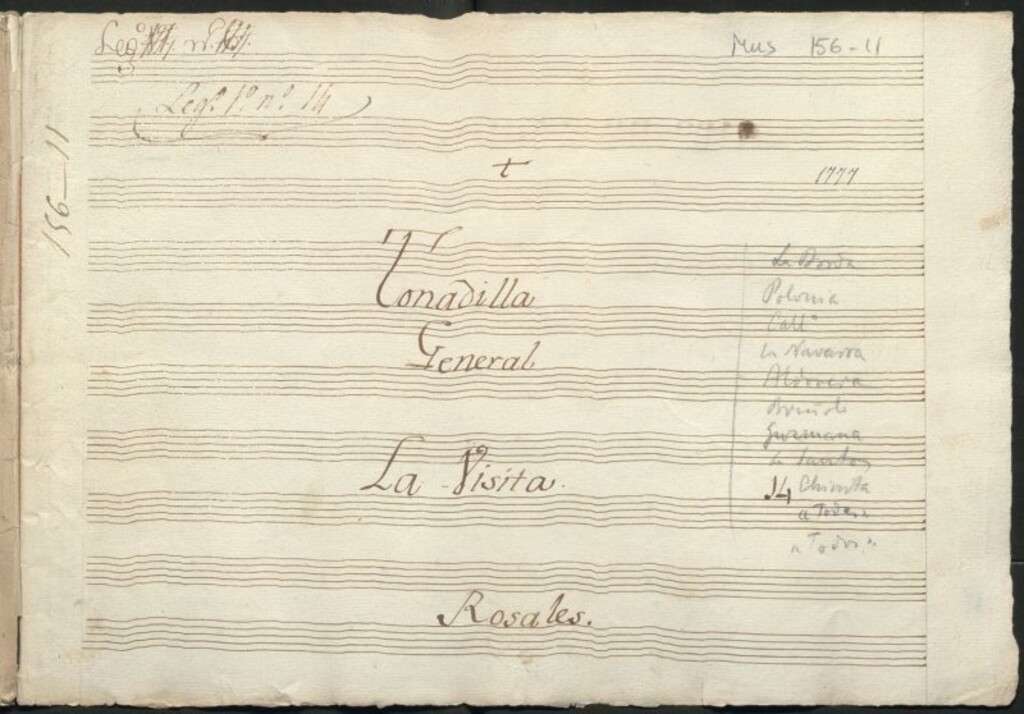 Mus 156-11
Leg.º 1º n.º 14
156-11
t
1777
Tonadilla
General
La Visita.
Rosales.
La Borda
Polonia
Call.º
La Navarra
Guzmana
14 Chinita
"Todas"
"Todos"